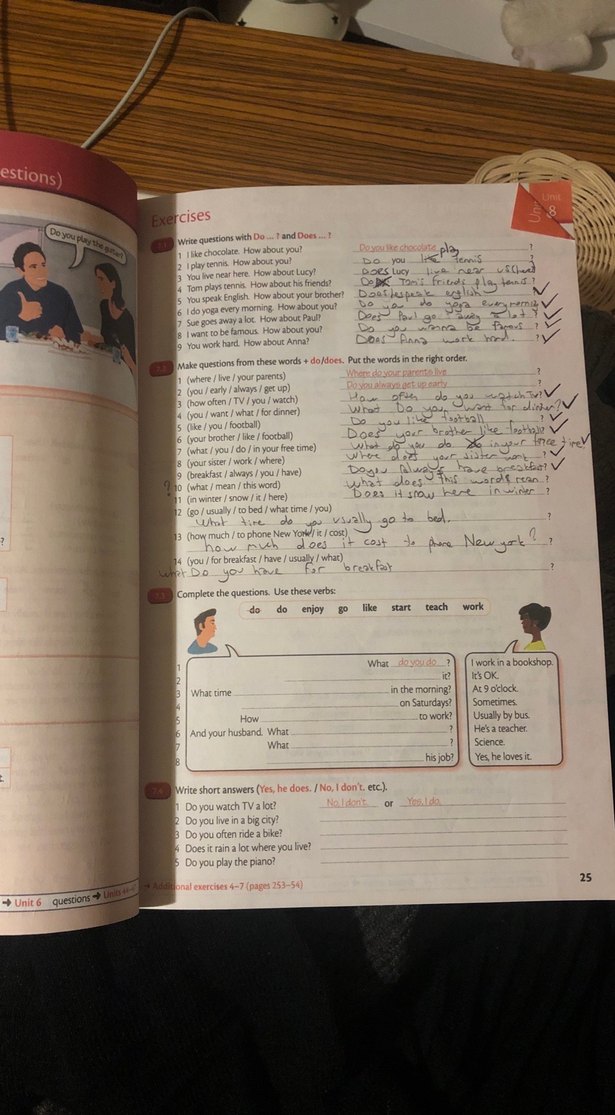 estions)
Do you play the guitar?
→ Unit 6 questions → Units
Unit
8
Exercises
7.1 Write questions with Do ... ? and Does ... ?
1 I like chocolate. How about you? Do you like chocolate ?
2 I play tennis. How about you? Do you play tennis ?
3 You live near here. How about Lucy? Does Lucy live near ?
4 Tom plays tennis. How about his friends? Do Tom's friends play tennis ?
5 You speak English. How about your brother? Does speak english ?
6 I do yoga every morning. How about you? Do you do yoga every morning
7 Sue goes away a lot. How about Paul? Does Paul go away a lot ?
8 I want to be famous. How about you? Do you wanna be famous ?
9 You work hard. How about Anna? Does Anna work hard. ?
7.2 Make questions from these words + do/does. Put the words in the right order.
1 (where / live / your parents) Where do your parents live ?
2 (you / early / always / get up) Do you always get up early ?
3 (how often / TV / you / watch) How often do you watch TV?
4 (you / want / what / for dinner) What Do you want for dinner?
5 (like / you / football) Do you like football ?
6 (your brother / like / football) Does your brother like football?
7 (what / you / do / in your free time) What do you do in your free time
8 (your sister / work / where) Where does your sister work ?
9 (breakfast / always / you / have) Do you Always have breakfast?
? 10 (what / mean / this word) What does this word mean ?
11 (in winter / snow / it / here) Does it snow here in winter ?
12 (go / usually / to bed / what time / you)
What time do you usually go to bed. ?
13 (how much / to phone New York / it / cost)
how much does it cost to phone New york? ?
14 (you / for breakfast / have / usually / what)
What Do you have for breakfast ?
7.3 Complete the questions. Use these verbs:
do do enjoy go like start teach work
1 What do you do ? I work in a bookshop.
2 it? It's OK.
3 What time in the morning? At 9 o'clock.
4 on Saturdays? Sometimes.
5 How to work? Usually by bus.
6 And your husband. What ? He's a teacher.
7 What ? Science.
8 his job? Yes, he loves it.
7.4 Write short answers (Yes, he does. / No, I don't. etc.).
1 Do you watch TV a lot? No, I don't. or Yes, I do.
2 Do you live in a big city?
3 Do you often ride a bike?
4 Does it rain a lot where you live?
5 Do you play the piano?
→ Additional exercises 4–7 (pages 253–54)
25